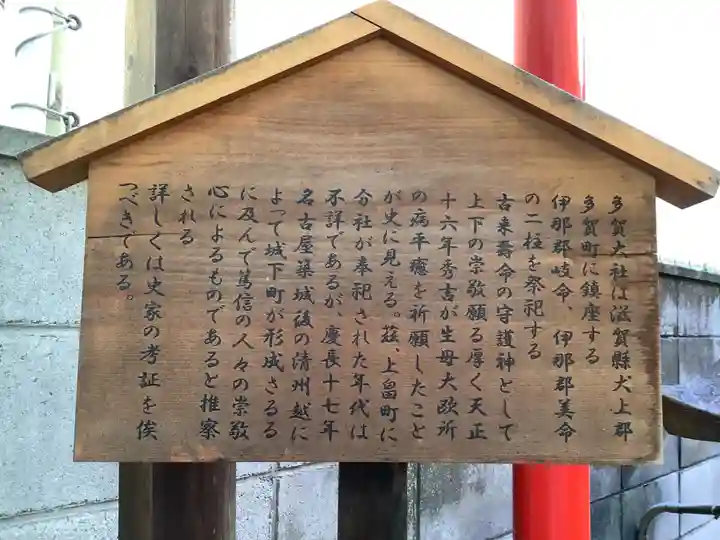 多賀大社は滋賀縣犬上郡
多賀町に鎮座する
伊那郡岐命、伊那郡美命
の二柱を祭祀する
古来寿命の守護神として
上下の崇敬願る厚く天正
十六年秀吉が生母大政所
の病平癒を祈願したこと
が史に見える。茲、上畠町に
分社が奉祀された年代は
不詳であるが、慶長十七年
名古屋築城後の清州越に
よって城下町が形成さるる
に及んで篤信の人々の崇敬
心によるものであると推察
される
詳しくは史家の考証を俟
つべきである。